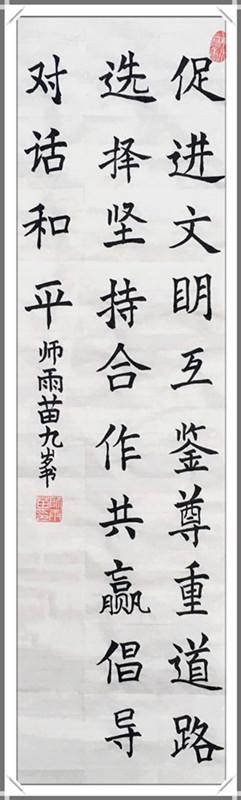 促进文明互鉴尊重道路
选择坚持合作共赢倡导
对话和平
师雨苗九岁书